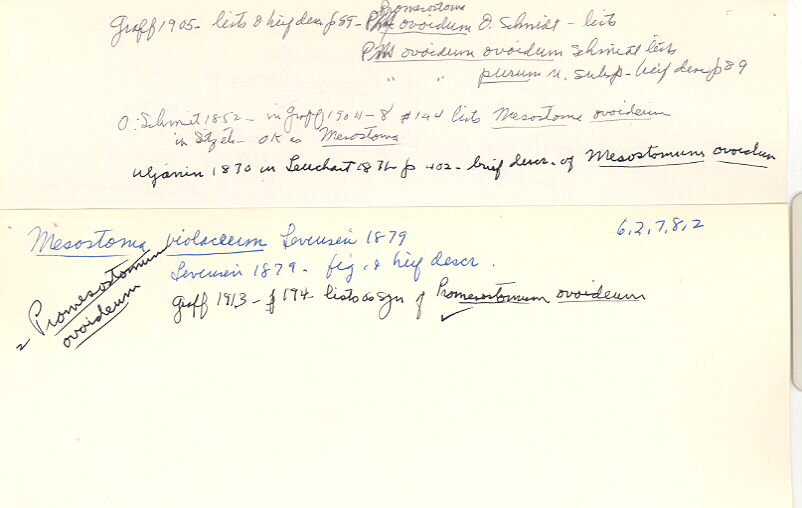 Graff 1905 - lists & brief descr p 89 - Promesostoma ovoideum O. Schmidt - lists
ovoideum ovoideum Schmidt lists
" " purum n. subsp - brief descr p 89
O. Schmidt 1852 - in Graff 1904-8 #144 lists Mesostoma ovoideum
in - OK as Mesostoma
Uljanin 1870 in Leuckart p 402 - brief descr. of Mesostomum ovoideum
Mesostoma violaceum Levinsen 1879
6,2,7,8,2
Levinsen 1879 - fig. & brief descr.
Graff 1913 - p 194 - lists as syn of Promesostomum ovoideum
= Promesostomum
ovoideum